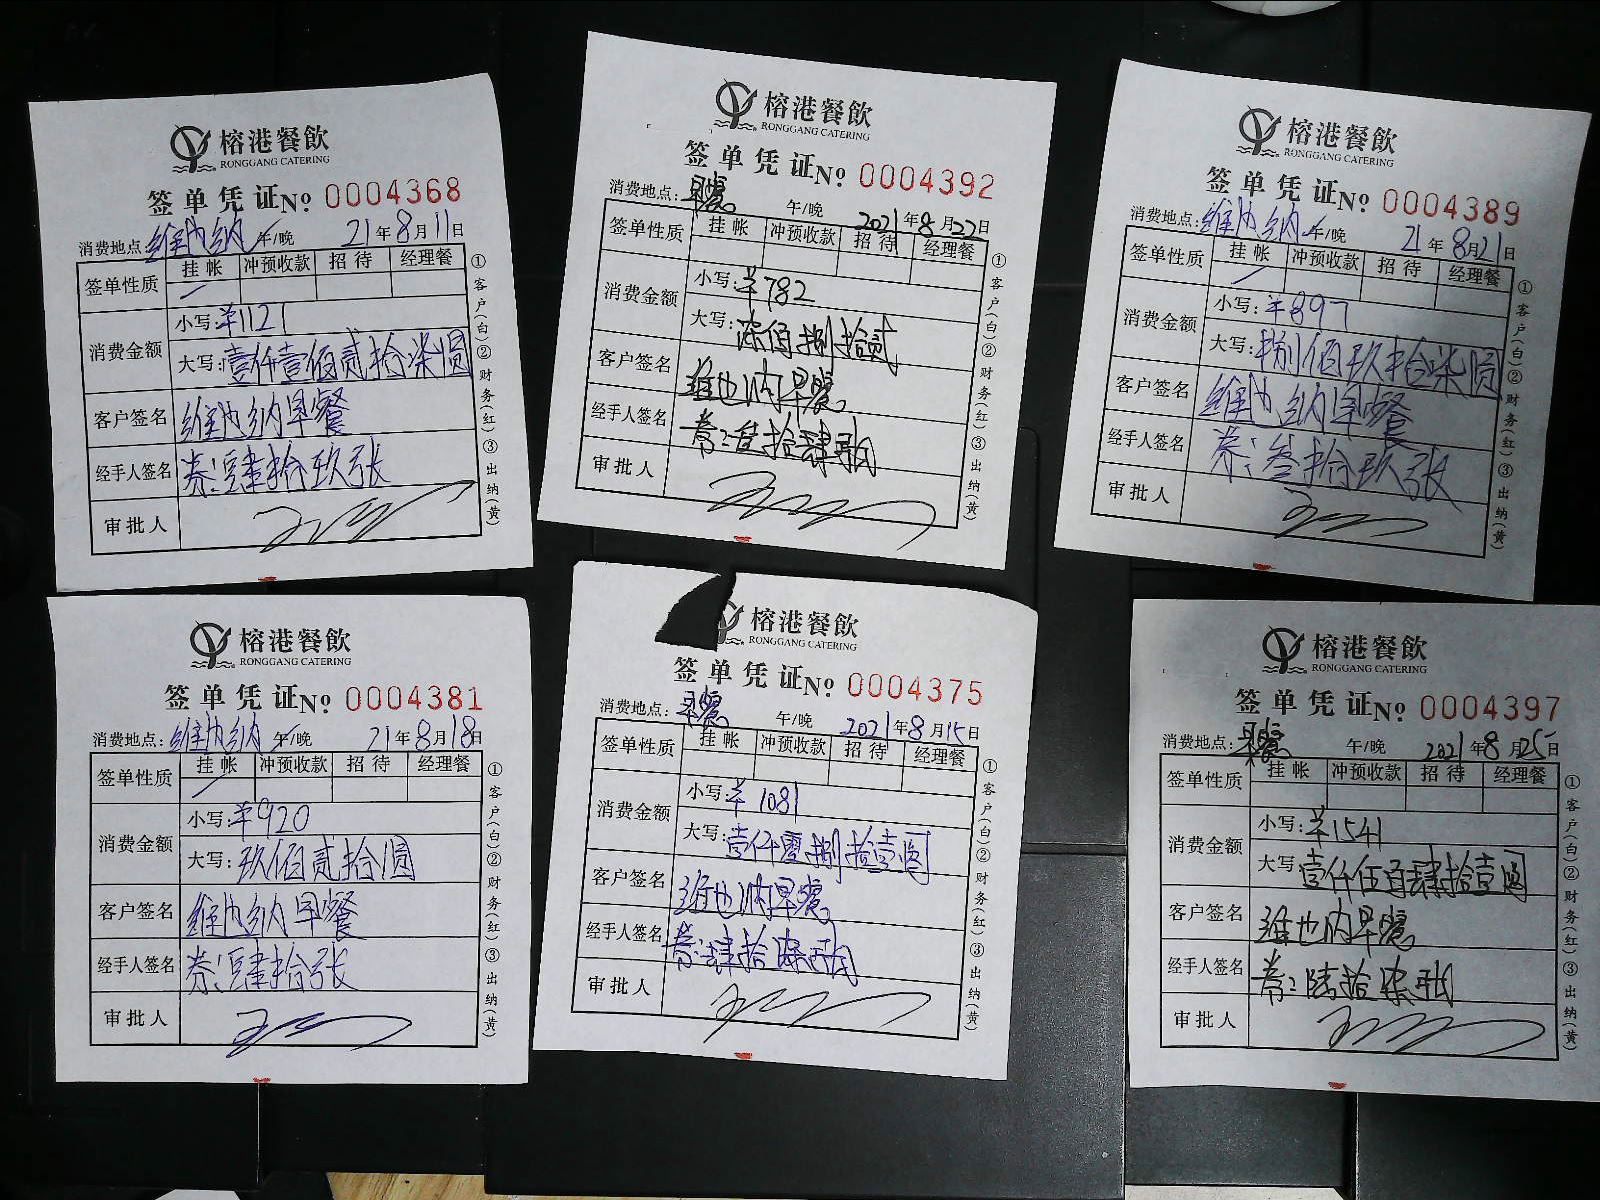 榕港餐飲
RONGGANG CATERING
签单凭证No. 0004368
消费地点:维也纳 午/晚 21年8月11日
签单性质 挂帐 冲预收款 招待 经理餐
消费金额 小写:¥1121
大写:壹仟壹佰贰拾柒圆
客户签名 维也纳早餐
经手人签名 券:肆拾玖张
审批人
①客户(白)②财务(红)③出纳(黄)
榕港餐飲
RONGGANG CATERING
签单凭证No. 0004392
消费地点:早餐 午/晚 2021年8月22日
签单性质 挂帐 冲预收款 招待 经理餐
消费金额 小写:¥782
大写:柒佰捌拾贰
客户签名 维也纳早餐
经手人签名 券:叁拾肆张
审批人
①客户(白)②财务(红)③出纳(黄)
榕港餐飲
RONGGANG CATERING
签单凭证No. 0004389
消费地点:维也纳 午/晚 21年8月21日
签单性质 挂帐 冲预收款 招待 经理餐
消费金额 小写:¥897
大写:捌佰玖拾柒圆
客户签名 维也纳早餐
经手人签名 券:叁拾玖张
审批人
①客户(白)②财务(红)③出纳(黄)
榕港餐飲
RONGGANG CATERING
签单凭证No. 0004381
消费地点:维也纳 午/晚 21年8月18日
签单性质 挂帐 冲预收款 招待 经理餐
消费金额 小写:¥920
大写:玖佰贰拾圆
客户签名 维也纳早餐
经手人签名 券:肆拾张
审批人
①客户(白)②财务(红)③出纳(黄)
榕港餐飲
RONGGANG CATERING
签单凭证No. 0004375
消费地点:早餐 午/晚 2021年8月15日
签单性质 挂帐 冲预收款 招待 经理餐
消费金额 小写:¥1081
大写:壹仟零捌拾壹圆
客户签名 维也纳早餐
经手人签名 券:肆拾柒张
审批人
①客户(白)②财务(红)③出纳(黄)
榕港餐飲
RONGGANG CATERING
签单凭证No. 0004397
消费地点:早餐 午/晚 2021年8月25日
签单性质 挂帐 冲预收款 招待 经理餐
消费金额 小写:¥1541
大写:壹仟伍佰肆拾壹圆
客户签名 维也纳早餐
经手人签名 券:陆拾柒张
审批人
①客户(白)②财务(红)③出纳(黄)